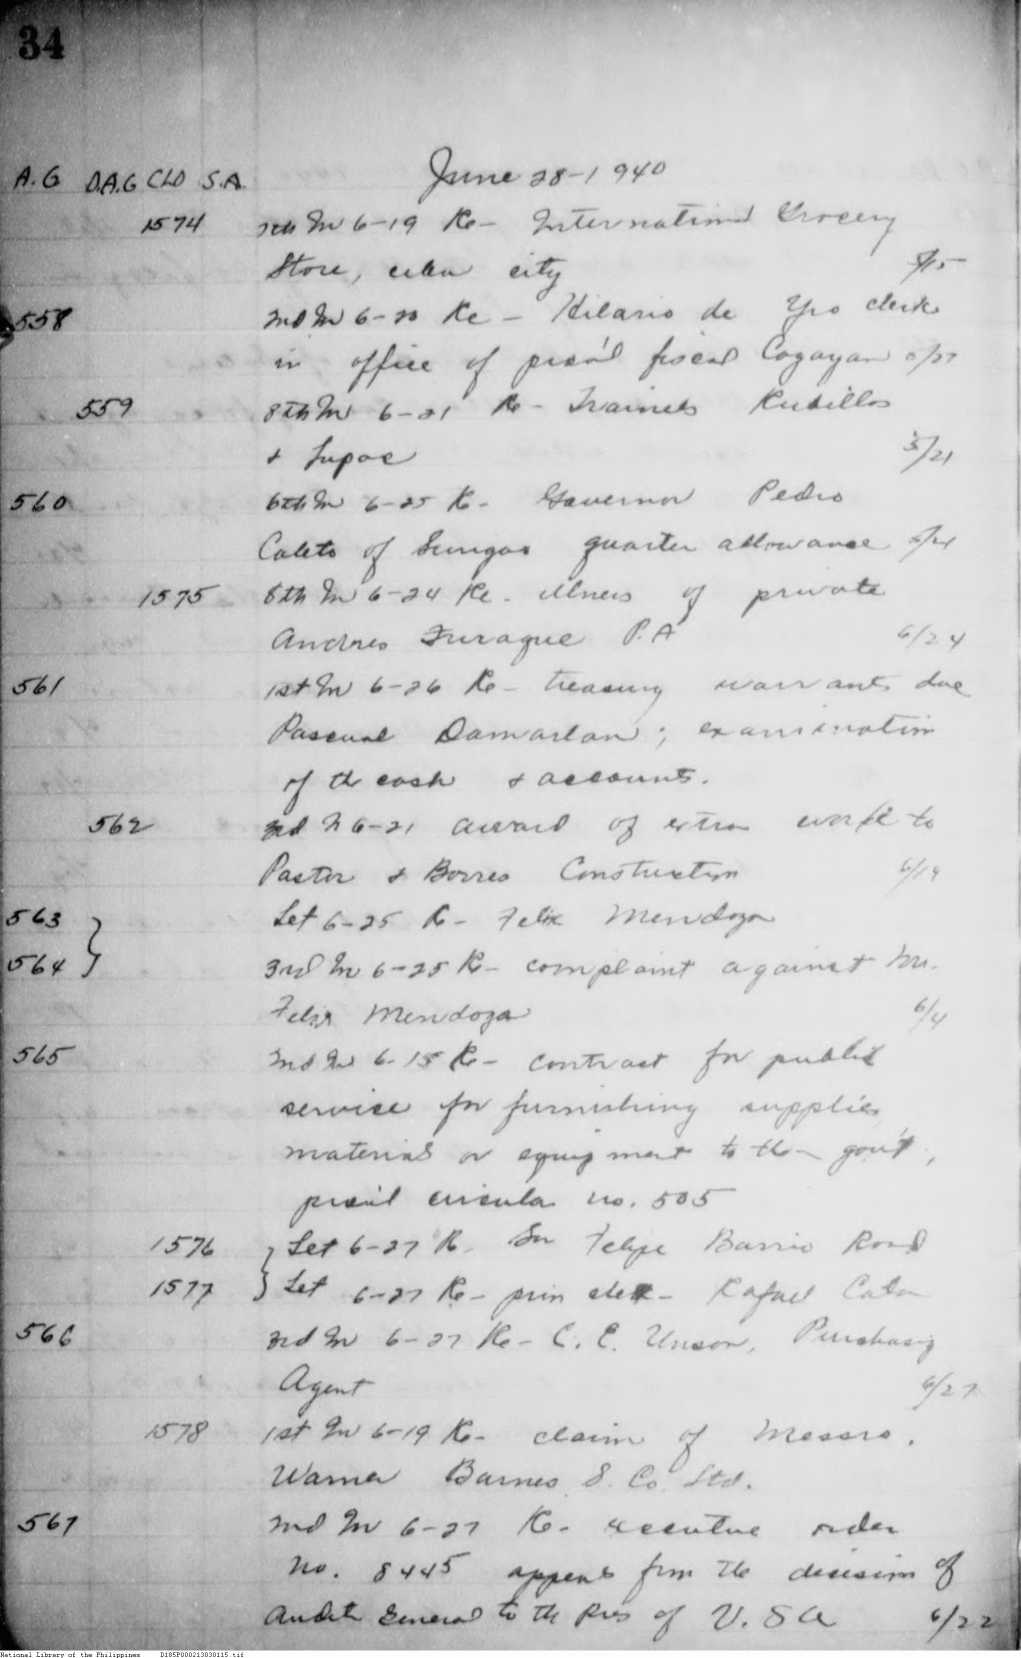 34
June 28-1940
A.G D.A.G CLD S.A.
1574 7th In 6-19 Re- International Grocery
Store, cebu city
558 2nd In 6-20 Re- Hilario de Yro clerk
in office of prov'l fiscal Cagayan
559 8th In 6-21 Re- Trainees Rubillos
& Lupac 5/21
560 6th In 6-25 Re- Governor Pedro
of quarter allowance
1575 8th In 6-24 Re- illness of private
Andres Furaque P.A 6/24
561 1st In 6-26 Re- treasury warrants due
Pascual Damarlan; examination
of the cash & accounts.
562 3rd In 6-21 award of extra work to
Pastor & Borres Construction 6/19
563 Let 6-25 Re- Felix Mendoza
564 3rd In 6-25 Re- complaint against Mr.
Felix Mendoza 6/4
565 2nd In 6-15 Re- contract for public
service for furnishing supplies
material or equipment to the gov't,
prov'l circular no. 505
1576 Let 6-27 Re- San Felipe Barrio Road
1577 Let 6-27 Re- Rafael
566 3rd In 6-27 Re- C. E. Unson, Purchasing
Agent 6/27
1578 1st In 6-19 Re- claim of Messrs.
Warner Barnes & Co Ltd.
567 2nd In 6-27 Re- executive order
no. 8445 appeals from the decision of
Auditor General to the Pres of U.S.A 6/22
National Library of the Philippines D185P000213030115.tif